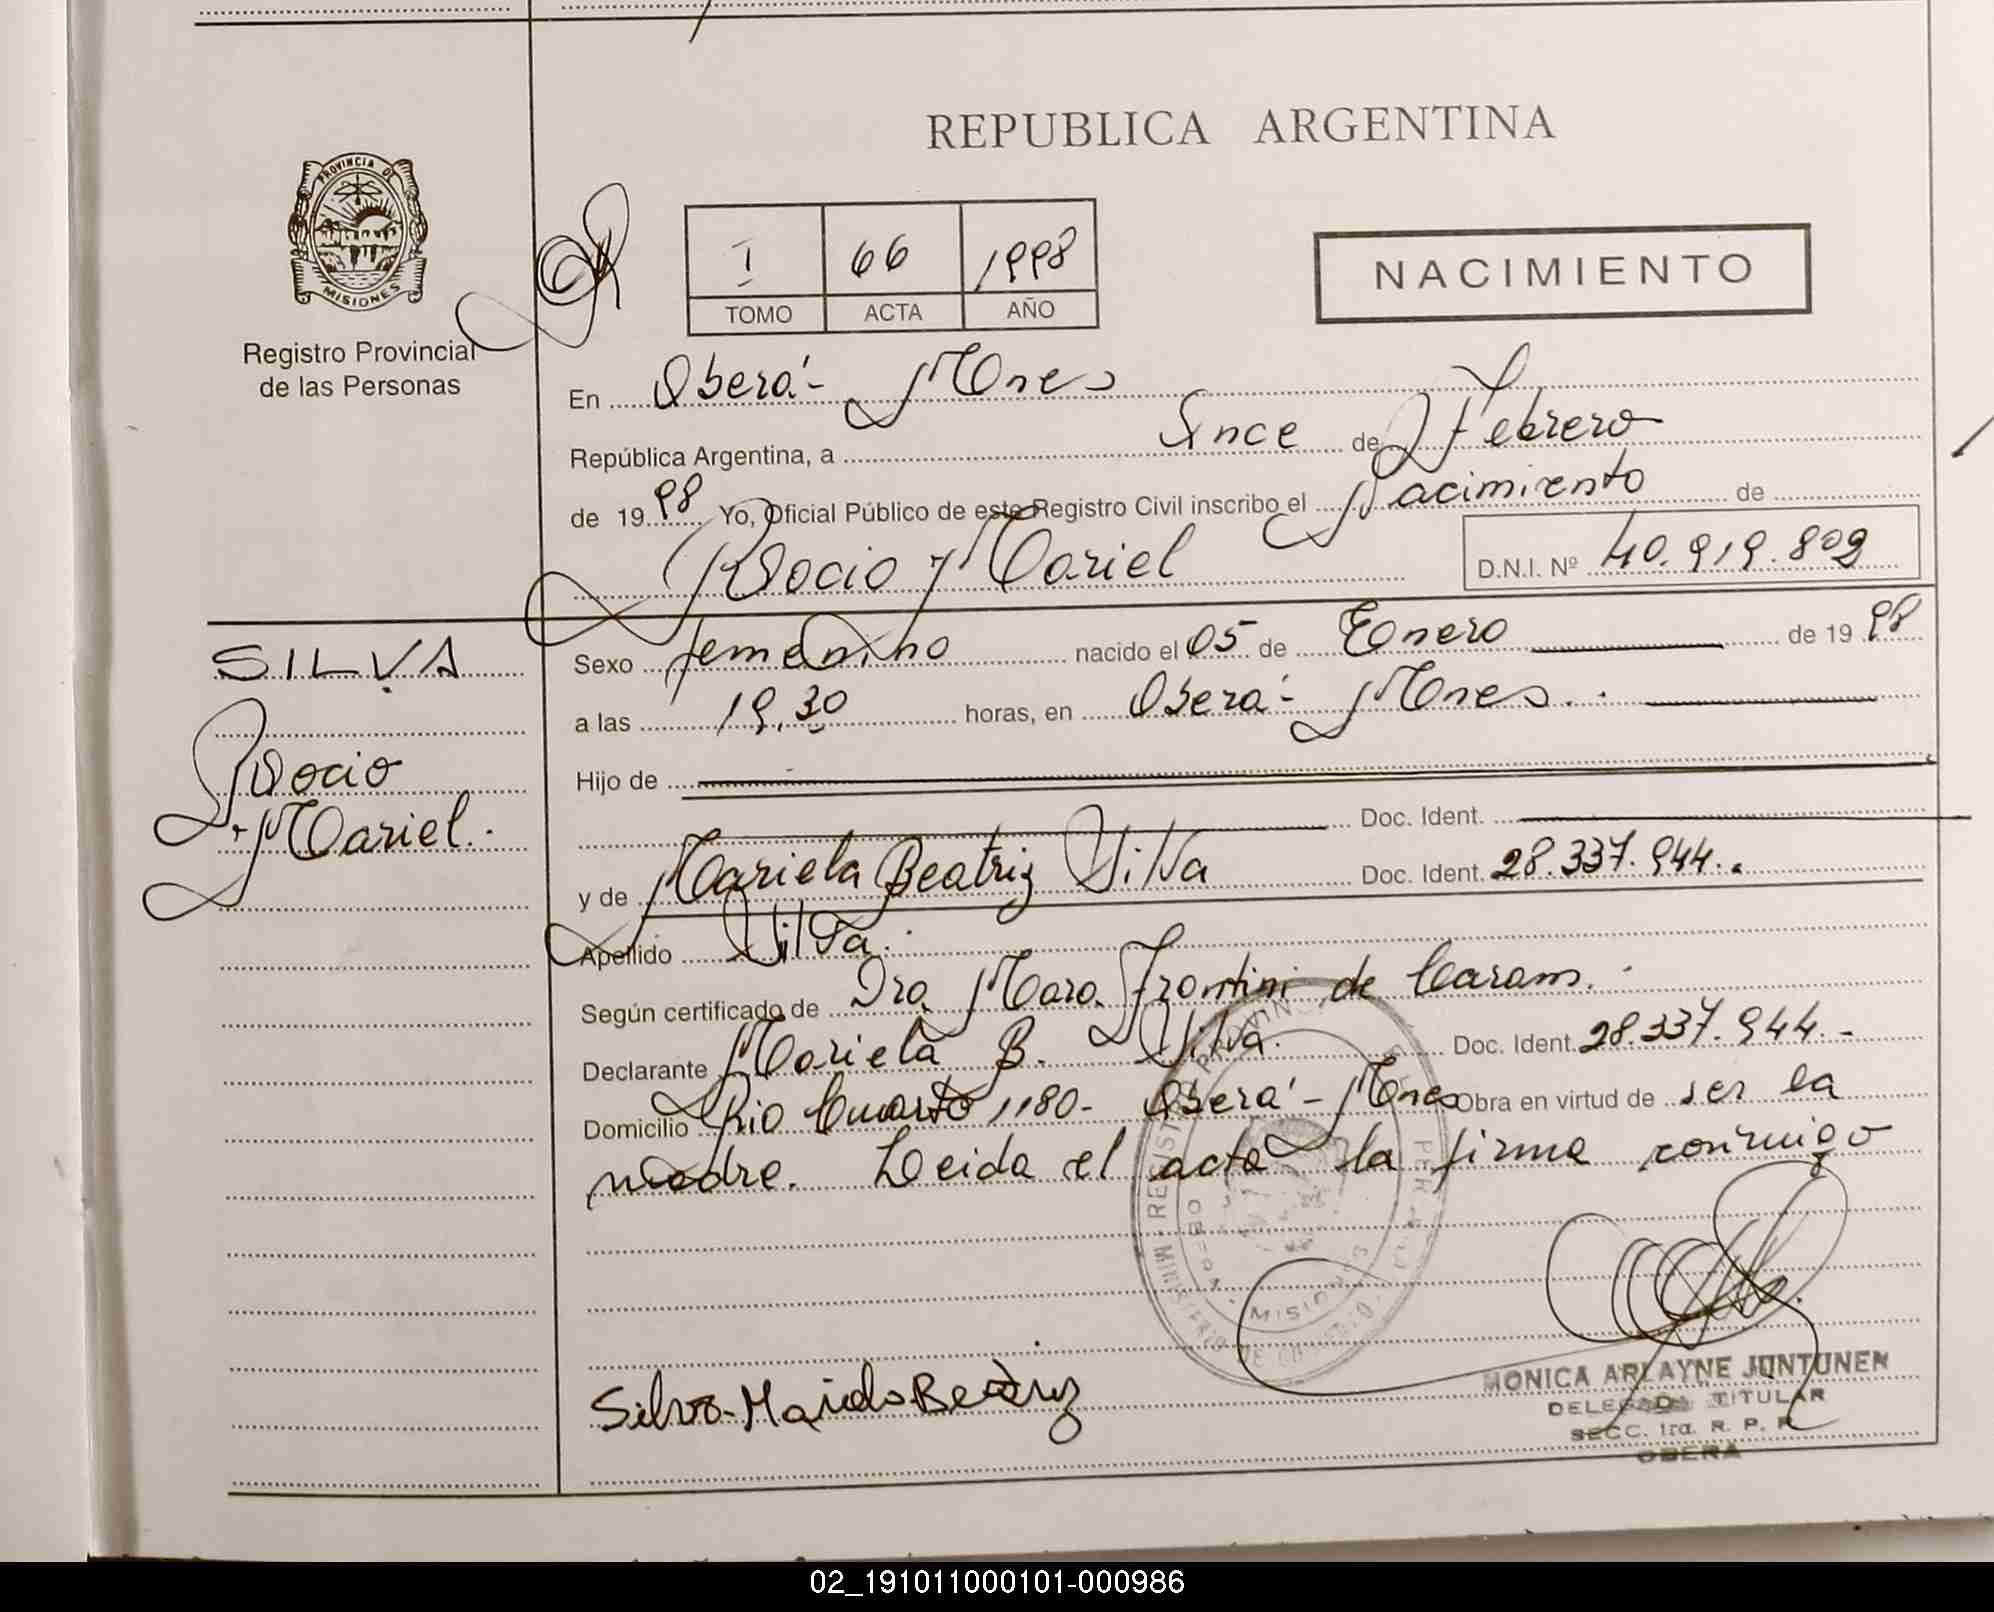 REPUBLICA ARGENTINA
PROVINCIA DE
MISIONES
Registro Provincial
de las Personas
I 66 1998
TOMO ACTA AÑO
NACIMIENTO
En Oberá - Mnes
República Argentina, a Once de Febrero
de 1998 Yo, Oficial Público de este Registro Civil inscribo el Nacimiento de
Rocio Mariel
D.N.I. Nº 40.919.802
SILVA
Rocio
Mariel.
Sexo femenino nacido el 05 de Enero de 1998
a las 19,30 horas, en Oberá - Mnes.
Hijo de
Doc. Ident.
y de Mariela Beatriz Silva Doc. Ident. 28.337.944.
Apellido Silva.
Según certificado de Dra. Mara Frontini de
Declarante Mariela B. Silva. Doc. Ident. 28.337.944.-
Domicilio Rio Cuarto 1180- Oberá - Mnes Obra en virtud de ser la
madre. Leida el acta la firma conmigo
MISIONES
Silva Mariela Beatriz
MONICA ARLAYNE JUNTUNEN
DELEGADA TITULAR
SECC. 1ra. R. P. P.
OBERA
02_191011000101-000986